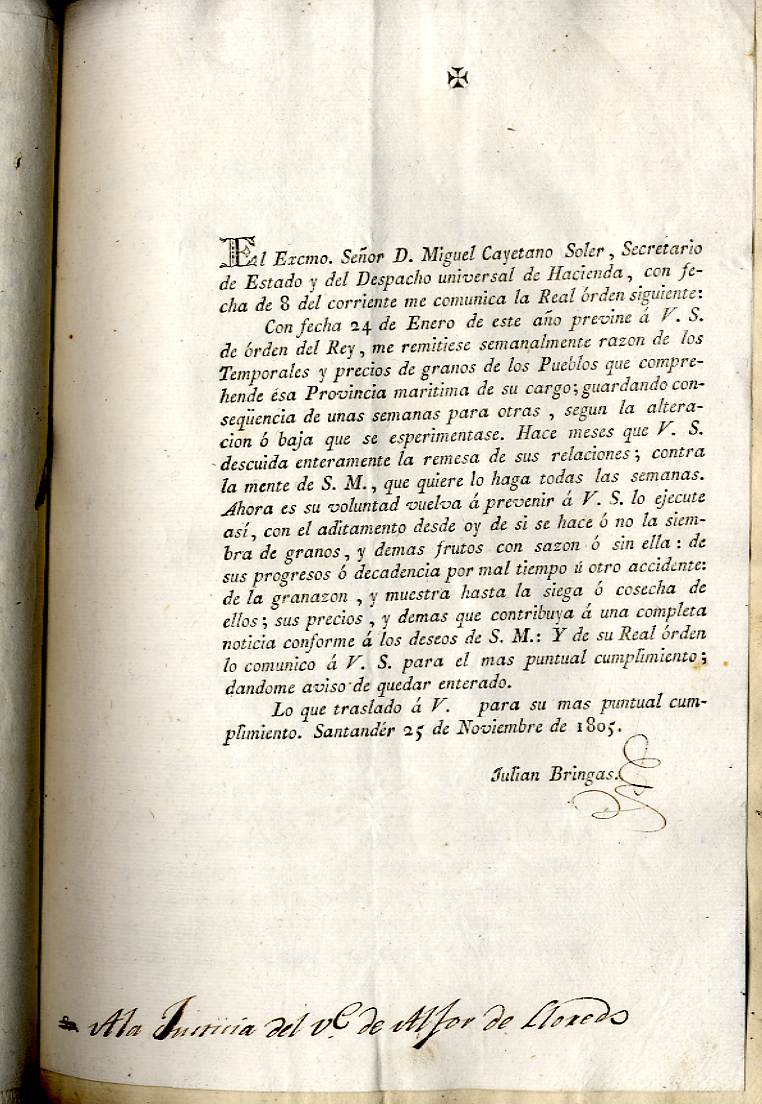 El Excmo. Señor D. Miguel Cayetano Soler, Secretario
de Estado y del Despacho universal de Hacienda, con fe-
cha de 8 del corriente me comunica la Real órden siguiente:
Con fecha 24 de Enero de este año previne á V. S.
de órden del Rey, me remitiese semanalmente razon de los
Temporales y precios de granos de los Pueblos que compre-
hende ésa Provincia maritima de su cargo; guardando con-
seqüencia de unas semanas para otras, segun la altera-
cion ó baja que se esperimentase. Hace meses que V. S.
descuida enteramente la remesa de sus relaciones; contra
la mente de S. M., que quiere lo haga todas las semanas.
Ahora es su voluntad vuelva á prevenir á V. S. lo ejecute
así, con el aditamento desde oy de si se hace ó no la siem-
bra de granos, y demas frutos con sazon ó sin ella: de
sus progresos ó decadencia por mal tiempo ú otro accidente:
de la granazon, y muestra hasta la siega ó cosecha de
ellos; sus precios, y demas que contribuya á una completa
noticia conforme á los deseos de S. M.: Y de su Real órden
lo comunico á V. S. para el mas puntual cumplimiento;
dandome aviso de quedar enterado.
Lo que traslado á V. para su mas puntual cum-
plimiento. Santandér 25 de Noviembre de 1805.
Julian Bringas.
A la Justicia del v.e de Alfor de Lloredo